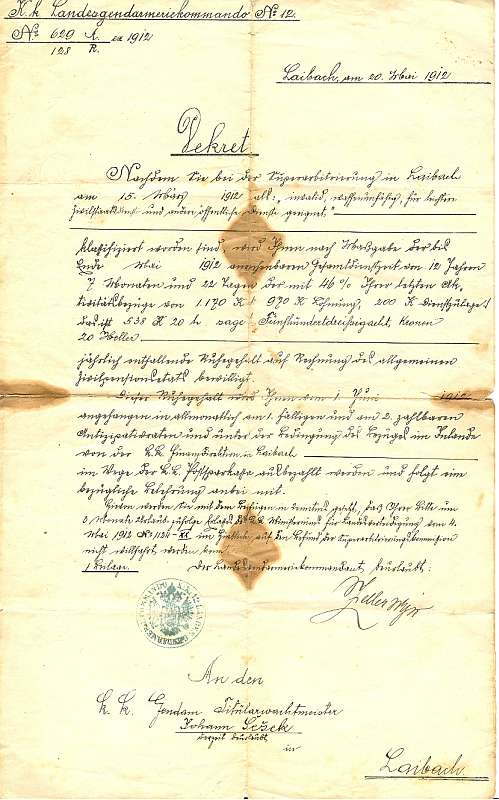 K.k. Landesgendarmeriekommando № 12.
№ 629 A. ex 1912
128 R.
Laibach, am 20. Mai 1912
Dekret
Nachdem Sie bei der Superarbitrierung in Laibach
am 15. März 1912 als: „invalid, waffenunfähig, für leichten
Zivilstaatsdienst und andere öffentliche Dienste geeignet“
klassifiziert worden sind, wird Ihnen nach Maßgabe der bis
Ende Mai 1912 anrechenbaren Gesamtdienstzeit von 12 Jahren
7 Monaten und 22 Tagen der mit 46% Ihrer letzten Ak-
tivitätsbezüge von 1170 K (970 K Löhnung, 200 K Dienstzulage)
das ist 538 K 20 h sage Fünfhundertdreißigacht Kronen
20 Heller
jährlich entfallende Ruhegehalt auf Rechnung des allgemeinen
Zivilpensionsetats bewilligt.
Dieser Ruhegehalt wird Ihnen vom 1. Juni 1912
angefangen in allmonatlich am 1. fälligen und am 2. zahlbaren
Antizipativraten und unter der Bedingung des Bezuges im Inlande
von der k.k. Finanzdirektion in Laibach
im Wege der k.k. Postsparkassa ausbezahlt werden und folgt eine
bezügliche Belehrung anbei mit.
Hievon werden Sie mit dem Beifügen in Kenntnis gesetzt, das Ihrer Bitte um
3 Monate Urlaub zufolge Erlaß des k.k. Ministeriums für Landesverteidigung vom 4.
Mai 1912 № 1124-XX im Hinblick auf den Befund der Superarbitrierungskommission
nicht willfahrt werden kann.
1 Beilage. Der Landesgendarmeriekommandant, beurlaubt:
Zeller Mjr
An den
k. k. Gendarm Titularwachtmeister
Johann
derzeit beurlaubt
in
Laibach.